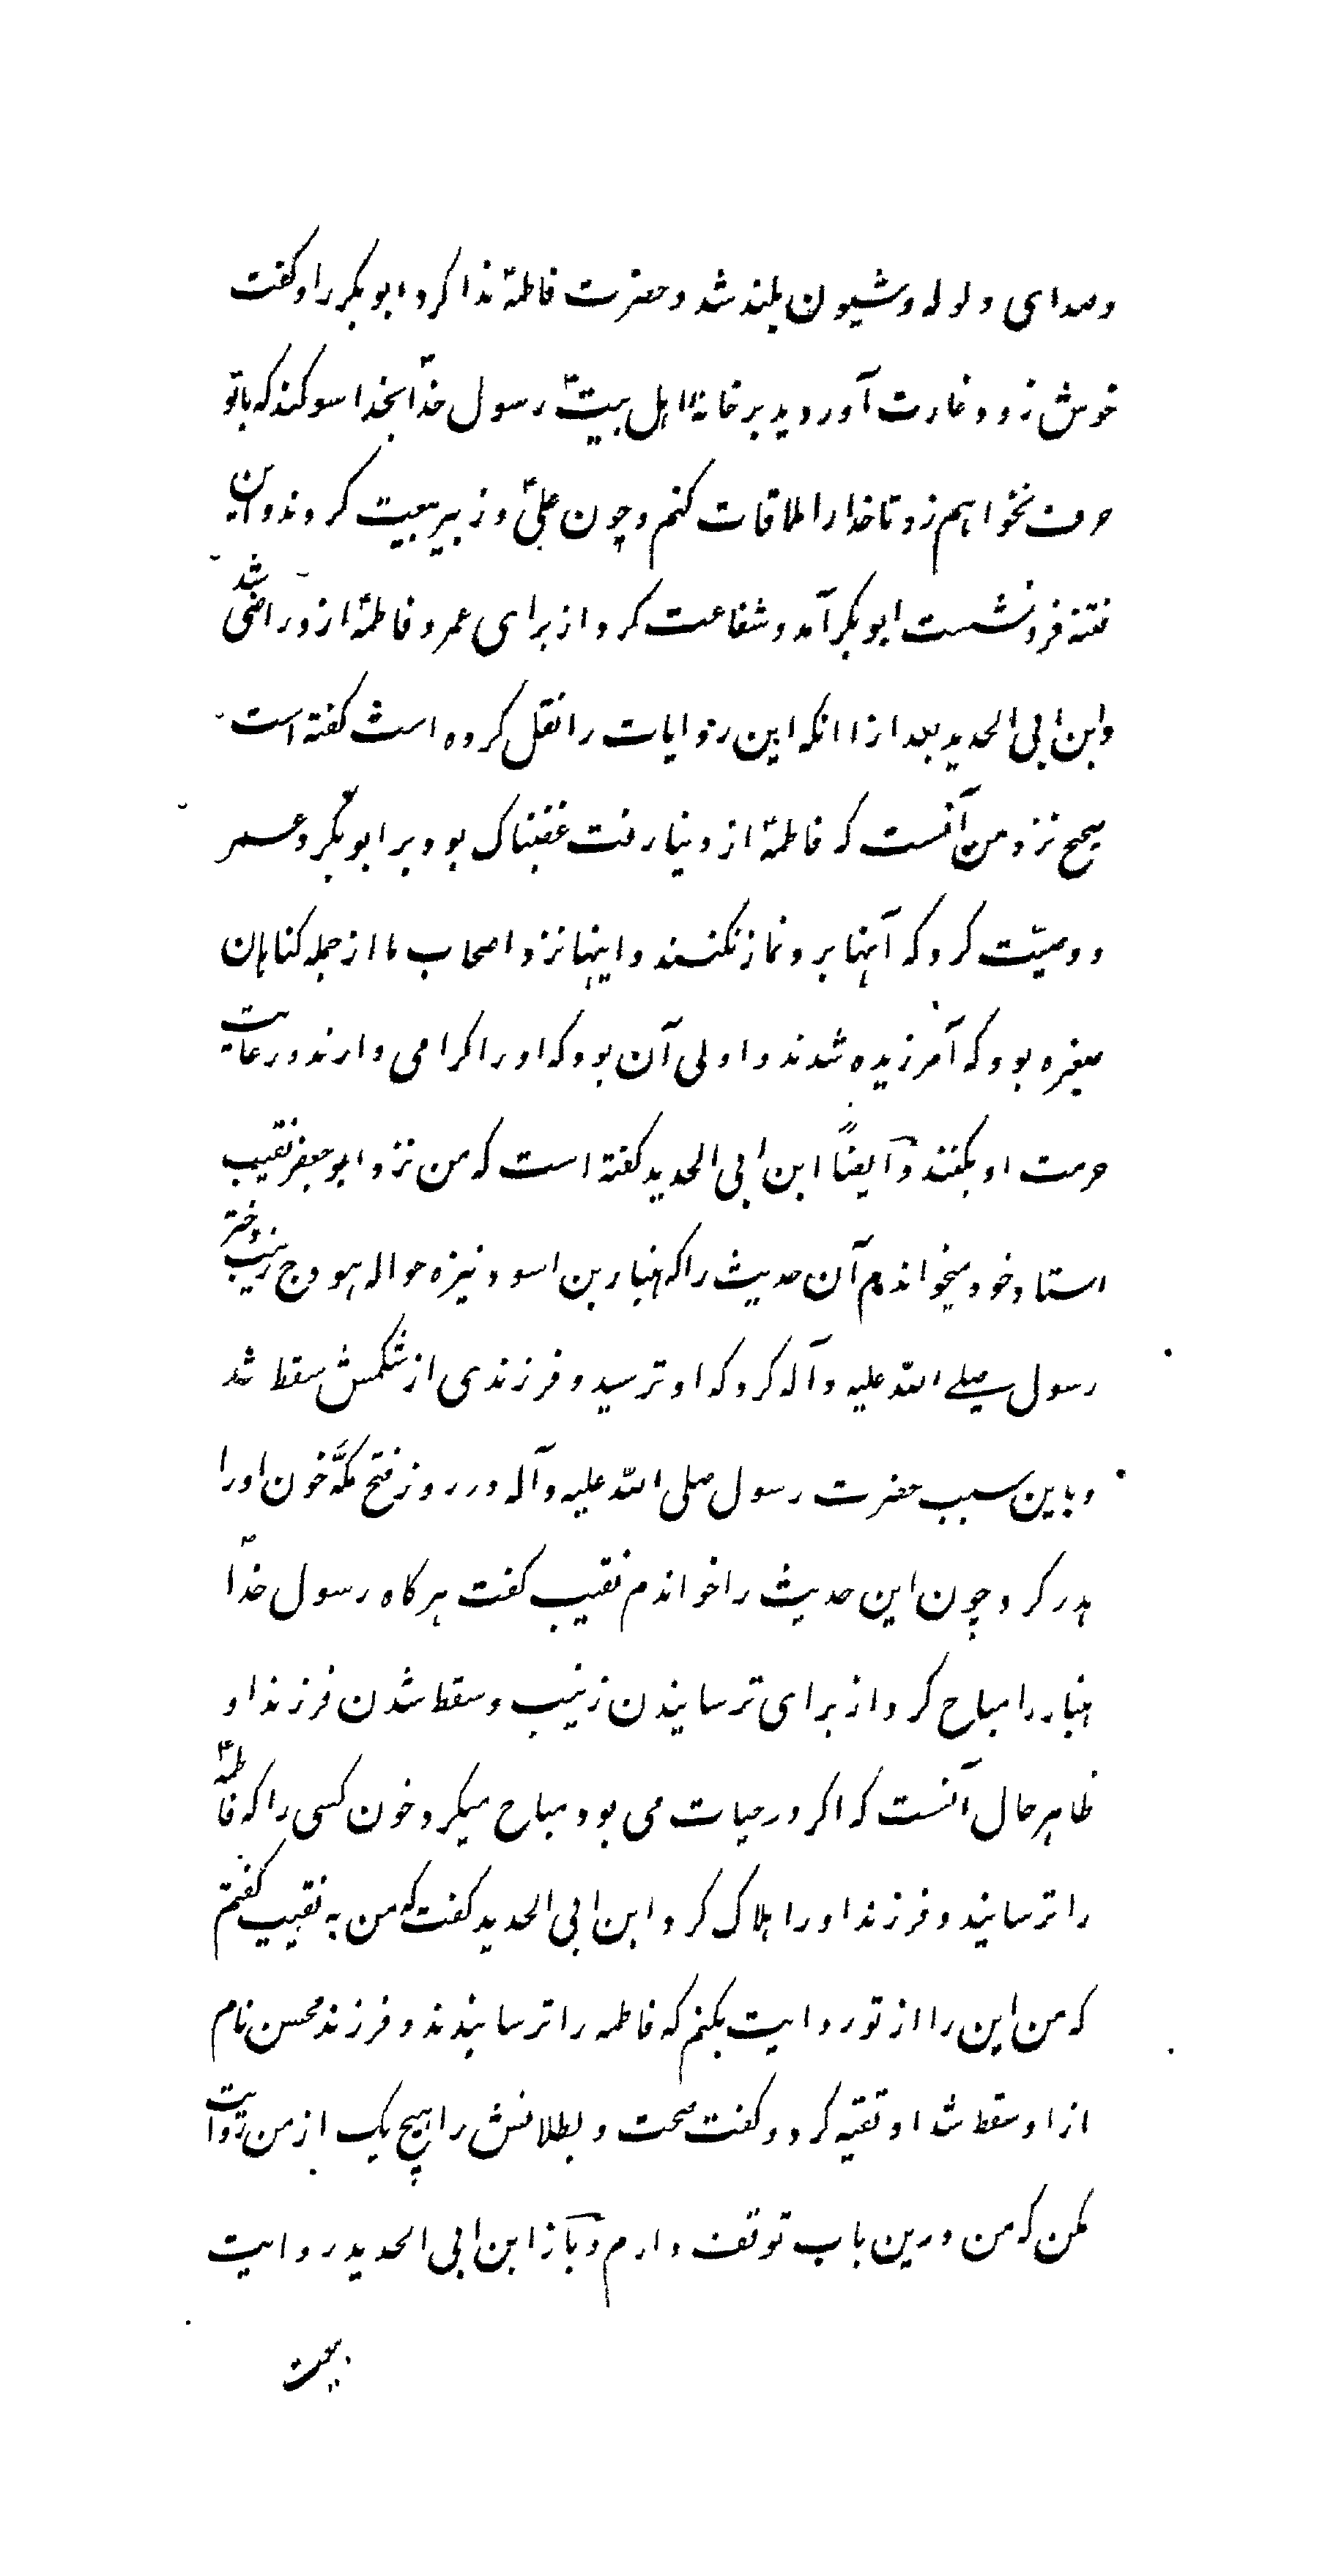 وصدای ولوله وشیون بلند شد وحضرت فاطمهٔ ندا کرد ابوبکر را وگفت
خوش زود غارت آوردید برخانهٔ اهل بیتؑ رسول خداؐ بخدا سوگند که باتو
حرف نخواهم زد تا خدا را ملاقات کنم وچون علیؑ وزبیر بیعت کردند واین
فتنه فرونشست ابوبکر آمد وشفاعت کرد از برای عمر وفاطمهؑ ازو راضی شد
وابن ابی الحدید بعد از انکه این روایات را نقل کرده است گفته است
صحیح نزد من آنست که فاطمهؑ از دنیا رفت غضبناک بود بر ابوبکر وعمر
ووصیّت کرد که آنها برو نماز نکنند واینها نزد اصحاب ما از جمله گناهان
صغیره بود که آمرزیده شدند واولی آن بود که اورا گرامی دارند ورعایت
حرمت او بکنند وایضاً ابن ابی الحدید گفته است که من نزد ابوجعفر نقیب
استاد خود میخواندم آن حدیث را که هبار بن اسود نیزه حواله هودج زینب دختر
رسول صلے الله علیه وآله کرد که او ترسید وفرزندی از شکمش سقط شد
وباین سبب حضرت رسول صلی الله علیه وآله در روز فتح مکّه خون اورا
هدر کرد چون این حدیث را خواندم نقیب گفت هرگاه رسول خداؐ
هبار را مباح کرد از برای ترسانیدن زینب وسقط شدن فرزند او
ظاهر حال آنست که اگر در حیات می بود مباح میکرد خون کسی را که فاطمهؑ
را ترسانید وفرزند اورا هلاک کرد ابن ابی الحدید گفت که من به نقیب گفتم
که من این را از تو روایت بکنم که فاطمه را ترسانیدند وفرزند محسن نام
از او سقط شد او تقیه کرد وگفت صحت وبطلانش را هیچ یک از من روایت
مکن که من درین باب توقف دارم وباز ابن ابی الحدید روایت